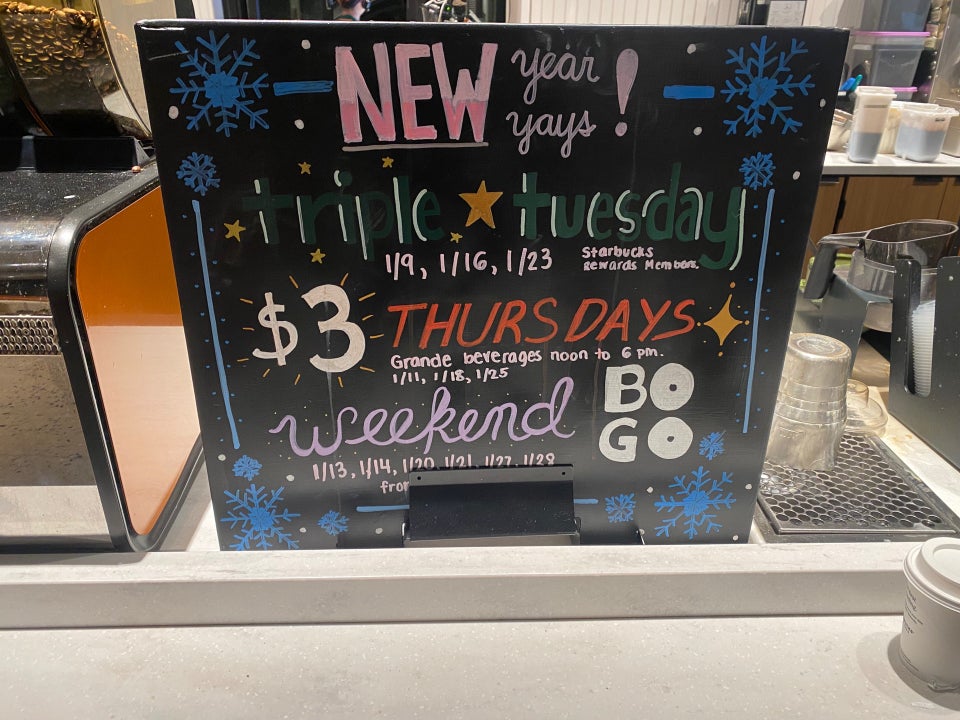 NEW year yays!
triple ★ tuesday
1/9, 1/16, 1/23
Starbucks
Rewards Members.
$3 THURSDAYS
Grande beverages noon to 6 pm.
1/11, 1/18, 1/25
weekend
BO
GO
1/13, 1/14, 1/20, 1/21, 1/27, 1/28